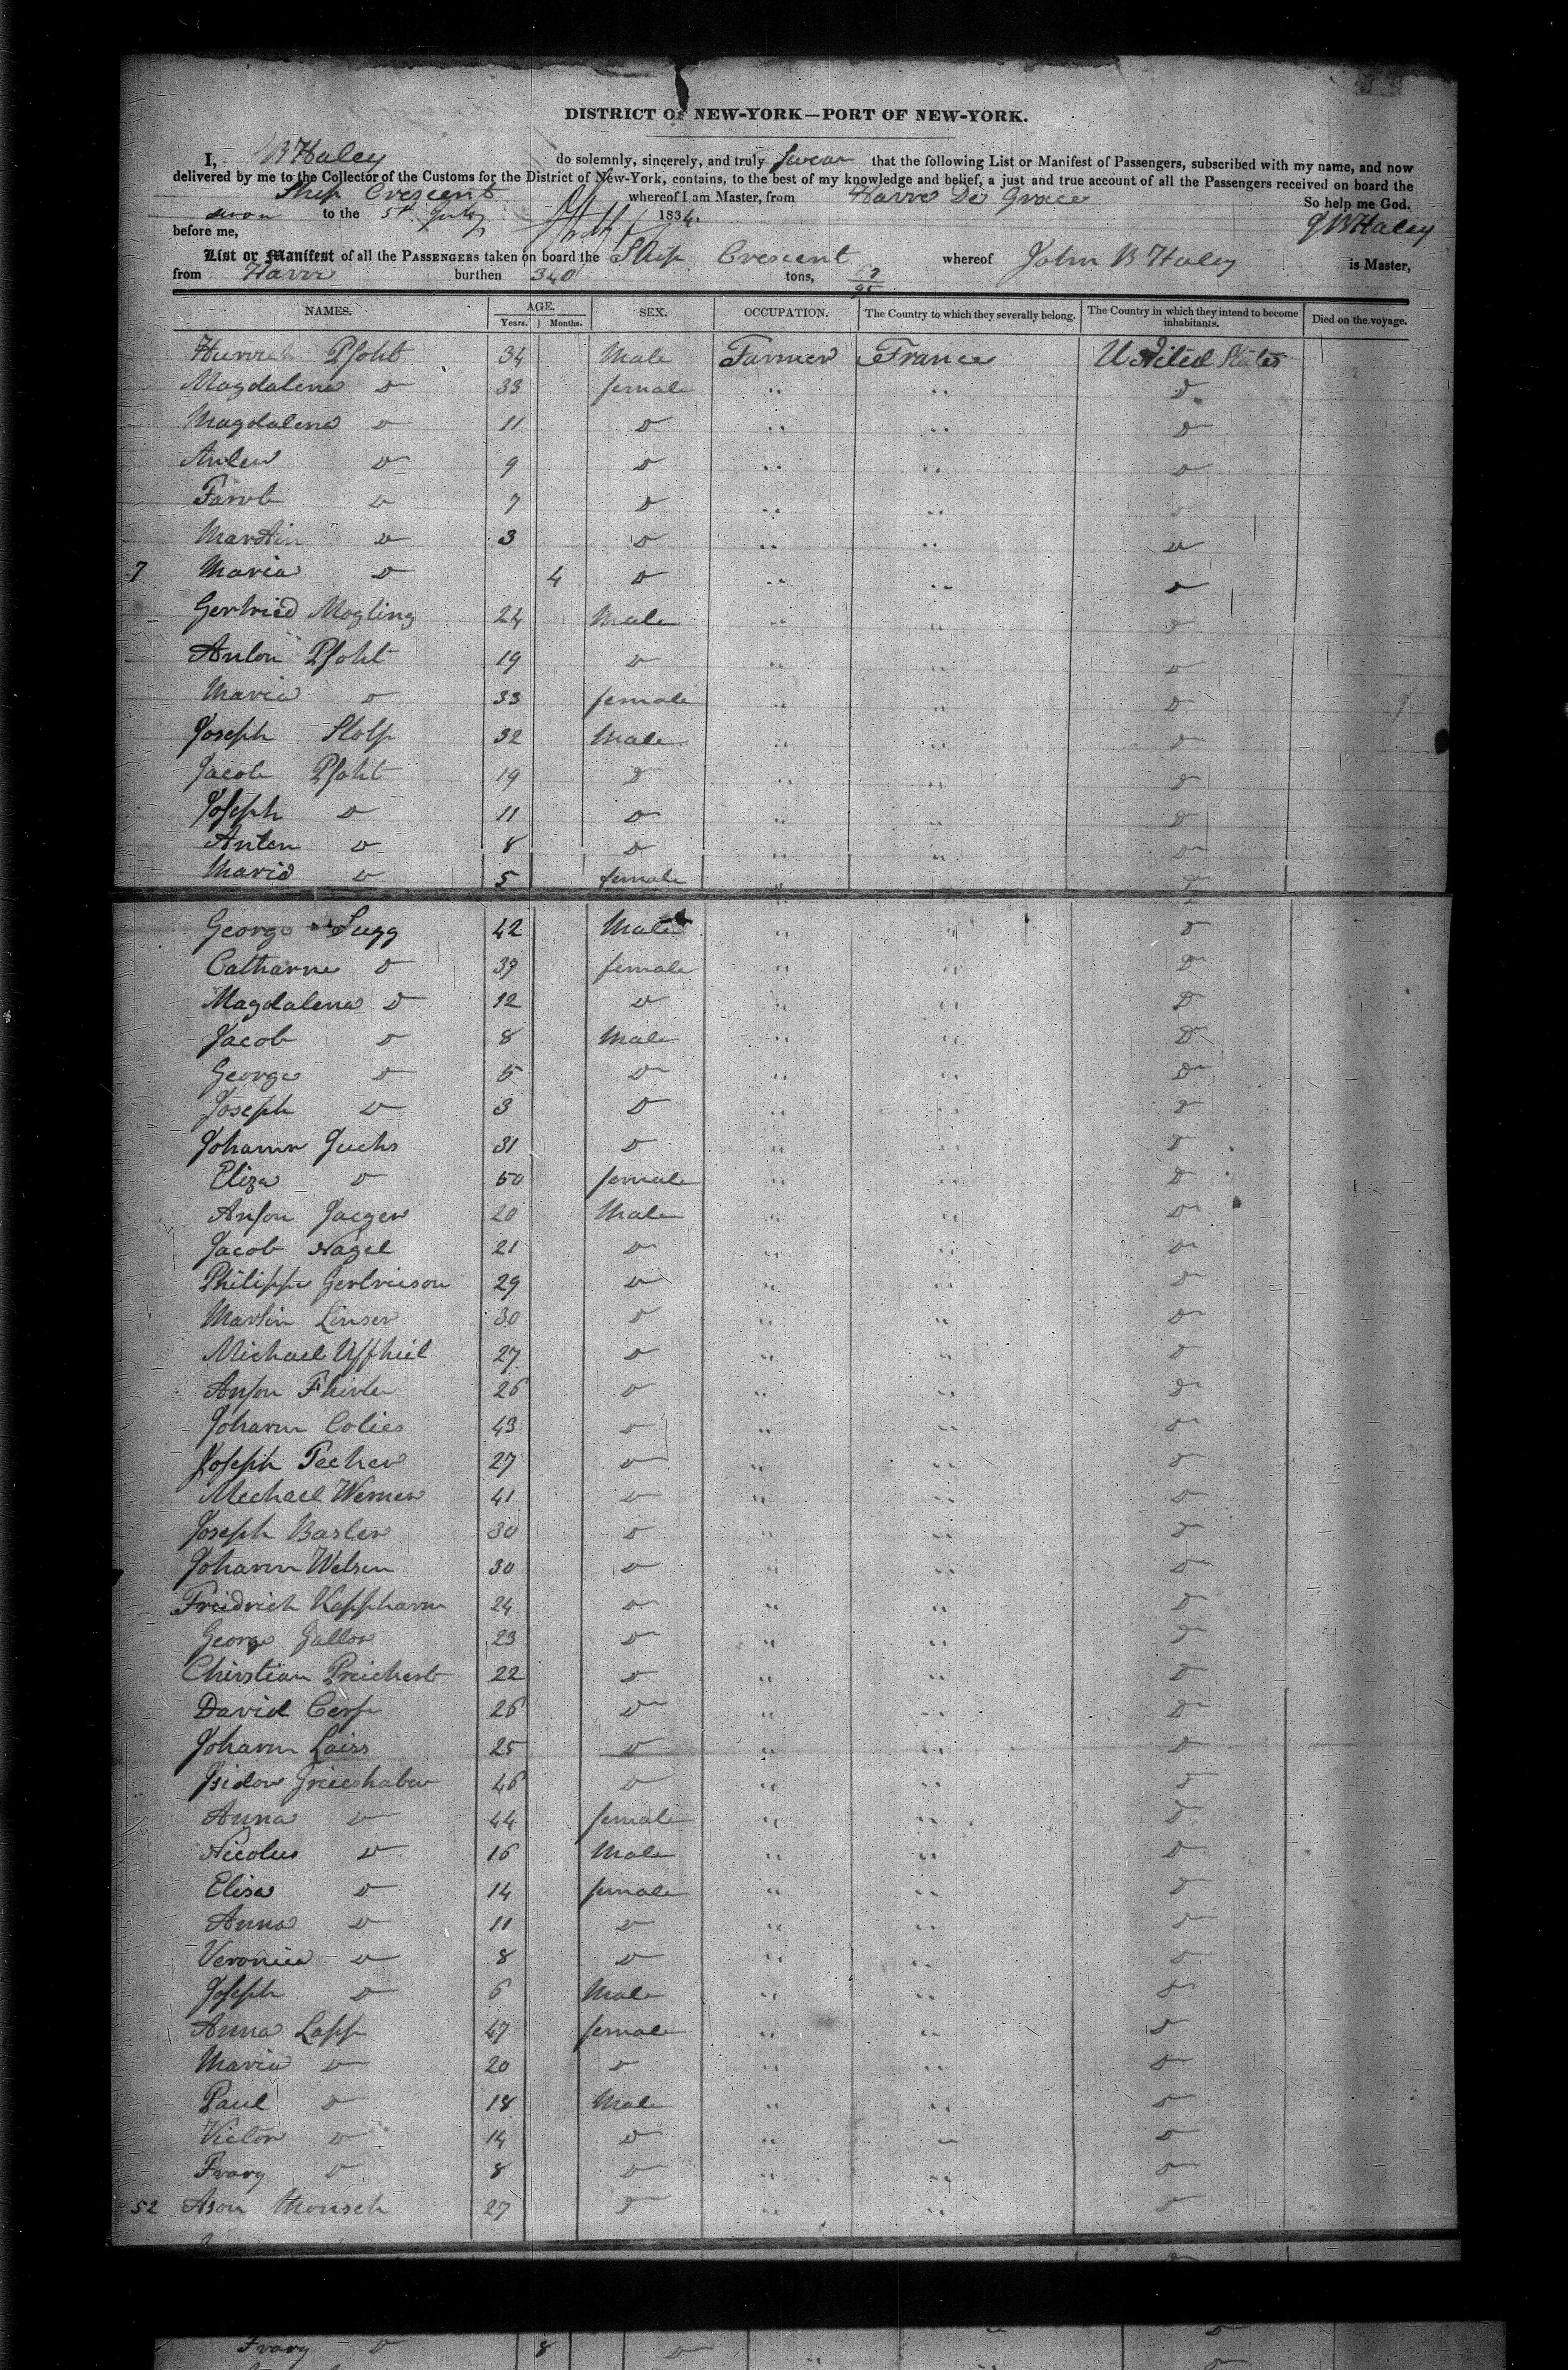 DISTRICT OF NEW-YORK—PORT OF NEW-YORK.
I, J B Haley do solemnly, sincerely, and truly swear that the following List or Manifest of Passengers, subscribed with my name, and now
delivered by me to the Collector of the Customs for the District of New-York, contains, to the best of my knowledge and belief, a just and true account of all the Passengers received on board the
Ship Crescent whereof I am Master, from Havre De Grace So help me God.
to the 5th July 1834. J B Haley
before me,
List or Manifest of all the PASSENGERS taken on board the Ship Crescent whereof John B Haley is Master,
from Havre burthen 340 tons,
NAMES. AGE. SEX. OCCUPATION. The Country to which they severally belong. The Country in which they intend to become inhabitants. Died on the voyage.
Years. Months.
Pfoht 34 Male Farmer France United States
Magdalena D 33 female " " D
Magdalena D 11 D " " D
D 9 D " " D
D 7 D " " D
Martin D 3 D " " D
7 Maria D 4 D " " D
Mogling 24 Male " " D
Anton Pfoht 19 D " " D
Maria D 33 female " " D
Joseph Stolp 32 Male " " D
Jacob Pfoht 19 D " " D
Joseph D 11 D " " D
Anten D 8 D " " D
Maria D 5 female " " D
George Sugg 42 Male " " D
Catharine D 37 female " " D
Magdalena D 12 D " " D
Jacob D 8 Male " " D
George D 5 D " " D
Joseph D 3 D " " D
Johann Fuchs 31 D " " D
Eliza D 50 female " " D
Anson Jaeger 20 Male " " D
Jacob Nagel 21 D " " D
Philippe 29 D " " D
Martin Linser 30 D " " D
Michael Uffhiel 27 D " " D
Anson 26 D " " D
Johann Colies 43 D " " D
Joseph Fecher 27 D " " D
Michael Werner 41 D " " D
Joseph Basler 30 D " " D
Johann Welsen 30 D " " D
Freidrich Kapphann 24 D " " D
George Gallor 23 D " " D
Christian Preichert 22 D " " D
David Cerf 26 D " " D
Johann Laiss 25 D " " D
Isidor Grieeshaber 46 D " " D
Anna D 44 female " " D
Nicolus D 16 Male " " D
Elisa D 14 female " " D
Anna D 11 D " " D
Veronica D 8 D " " D
Joseph D 6 Male " " D
Anna Lapp 47 female " " D
Maria D 20 D " " D
Paul D 18 Male " " D
Victor D 14 D " " D
Frary D 8 D " " D
52 Ason Monsch 27 D " " D
Frary D 8 D " D